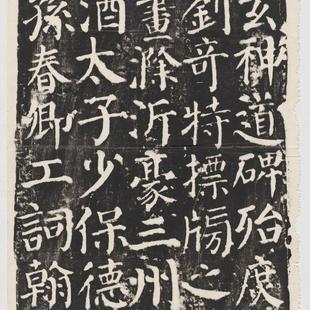 玄神道碑殆
劉奇特摽牓之
畫滁沂豪三州
酒太子少保德
孫春卿工詞翰